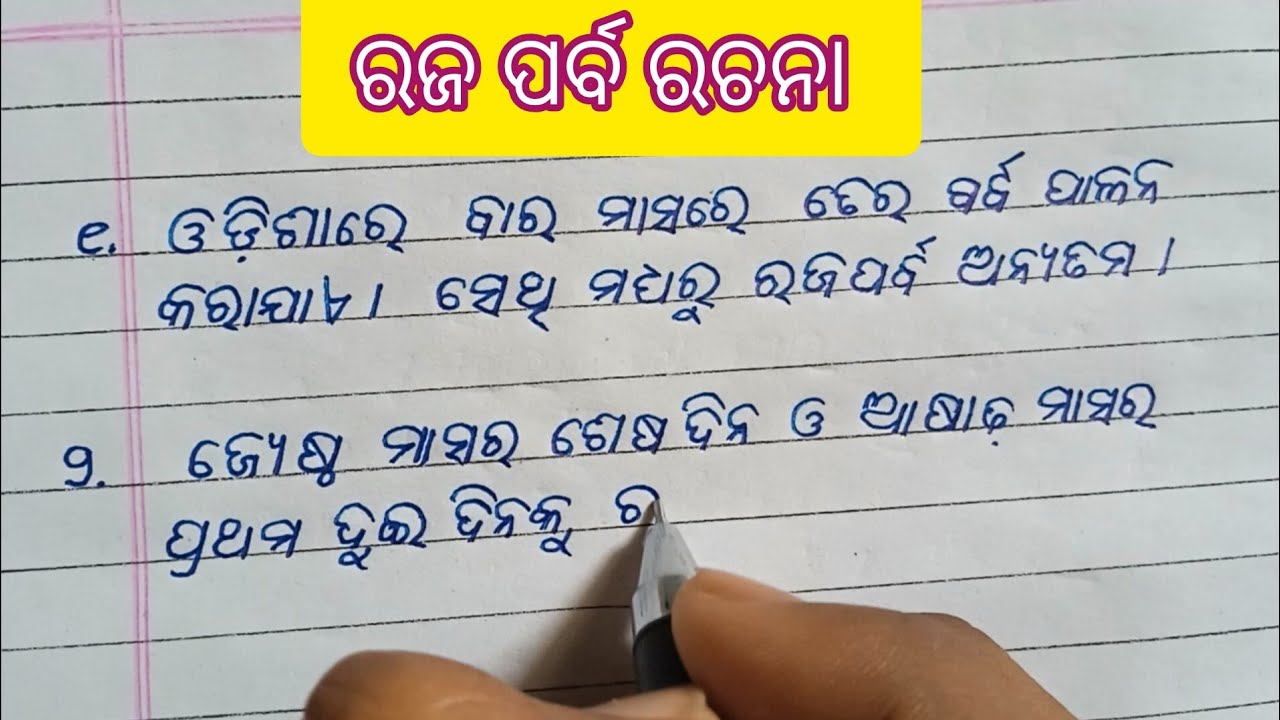 ରଜ ପର୍ବ ରଚନା
୧. ଓଡ଼ିଶାରେ ବାର ମାସରେ ତେର ପର୍ବ ପାଳନ
କରାଯାଏ । ସେଥି ମଧ୍ୟରୁ ରଜପର୍ବ ଅନ୍ୟତମ ।
୨. ଜ୍ୟେଷ୍ଠ ମାସର ଶେଷ ଦିନ ଓ ଆଷାଢ଼ ମାସର
ପ୍ରଥମ ଦୁଇ ଦିନକୁ ର